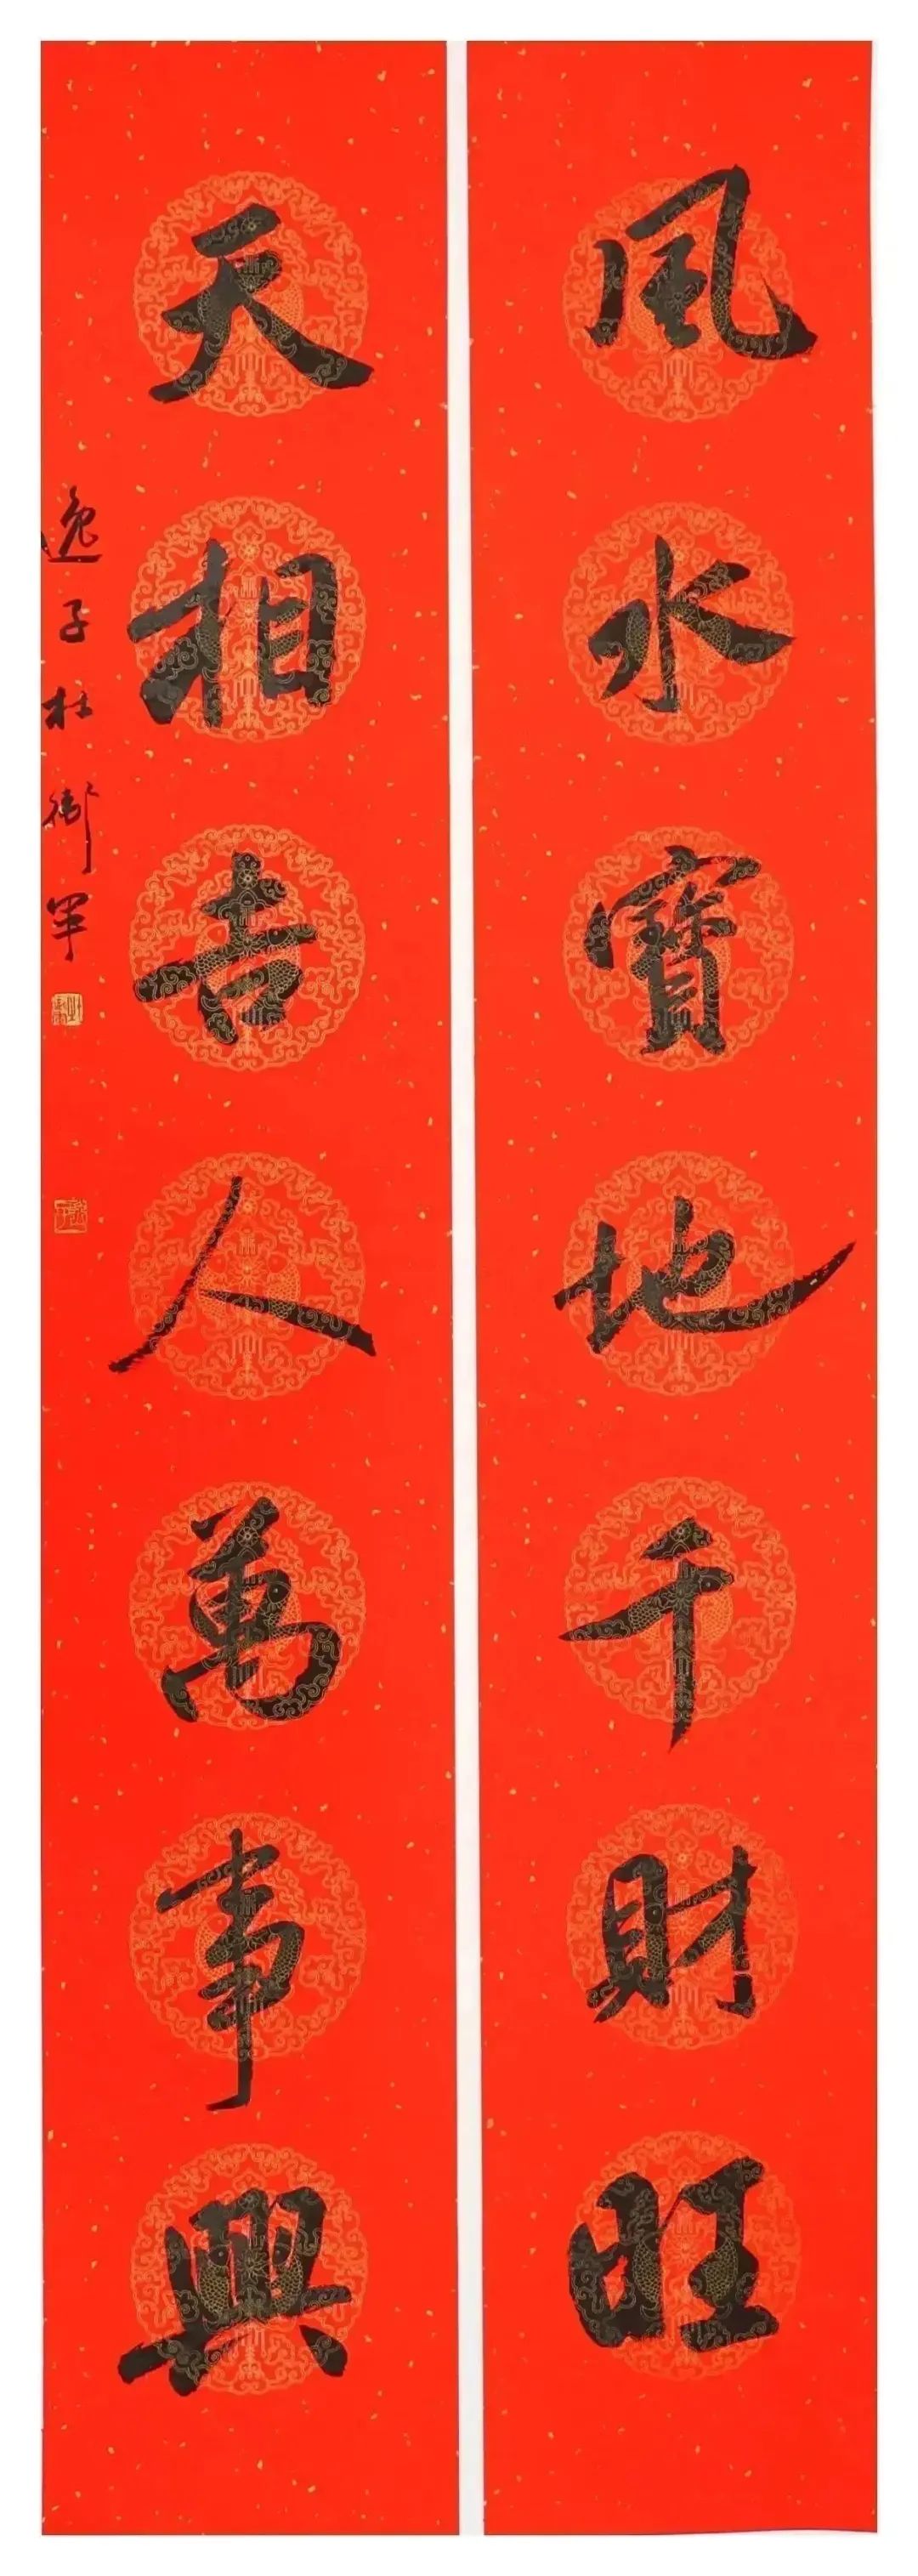 風水寶地千財旺
天相吉人萬事興
逸子杜衛軍